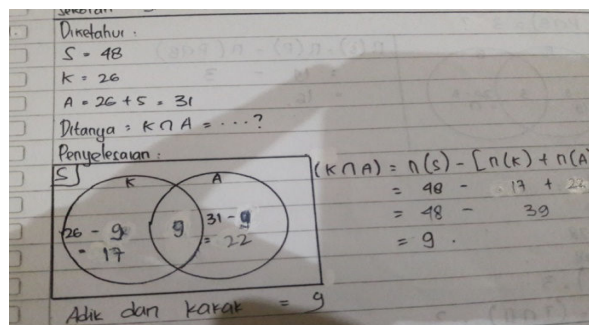 Diketahui :
S = 48
K = 26
A = 26 + 5 = 31
Ditanya : K ∩ A = ....?
Penyelesaian :
S K A
26 - 9 = 17
9
31 - 9 = 22
(K ∩ A) = n(S) - [n(K) + n(A
= 48 - 17 + 22
= 48 - 39
= 9 .
Adik dan kakak = 9